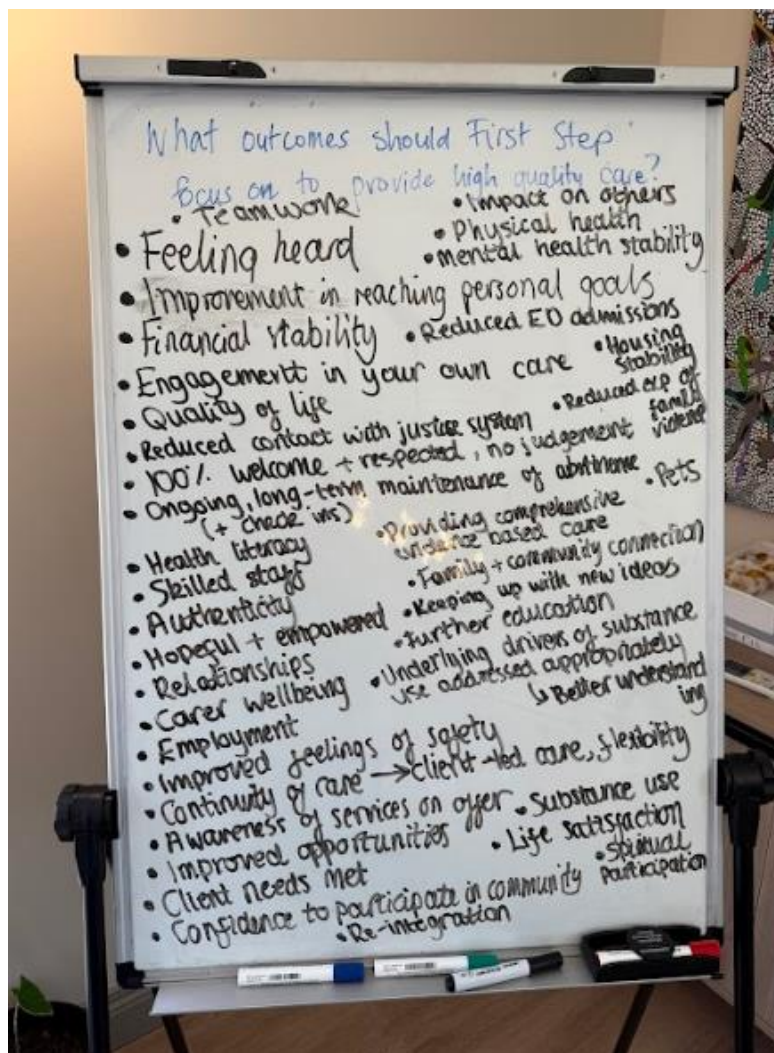 What outcomes should First Step
focus on to provide high quality care?
• Teamwork
• Impact on others
• Physical health
• Feeling heard
• mental health stability
• Improvement in reaching personal goals
• Financial stability
• Reduced ED admissions
• Engagement in your own care
• Housing
stability
• Quality of life
• Reduced exp of
family
violence
• Reduced contact with justice system
• 100% welcome + respected, no judgement
• Ongoing, long-term maintenance of abstinence
(+ check ins)
• Pets
• Providing comprehensive
evidence based care
• Health literacy
• Skilled staff
• Family + community connection
• Authenticity
• Keeping up with new ideas
• Hopeful + empowered
• Further education
• Relationships
• Underlying drivers of substance
use addressed appropriately
↳ Better understand
ing
• Carer wellbeing
• Employment
• Improved feelings of safety
• Continuity of care → client-led care, flexibility
• Awareness of services on offer
• Substance use
• Improved opportunities
• Life satisfaction
• Client needs met
• Spiritual
participation
• Confidence to participate in community
• Re-integration